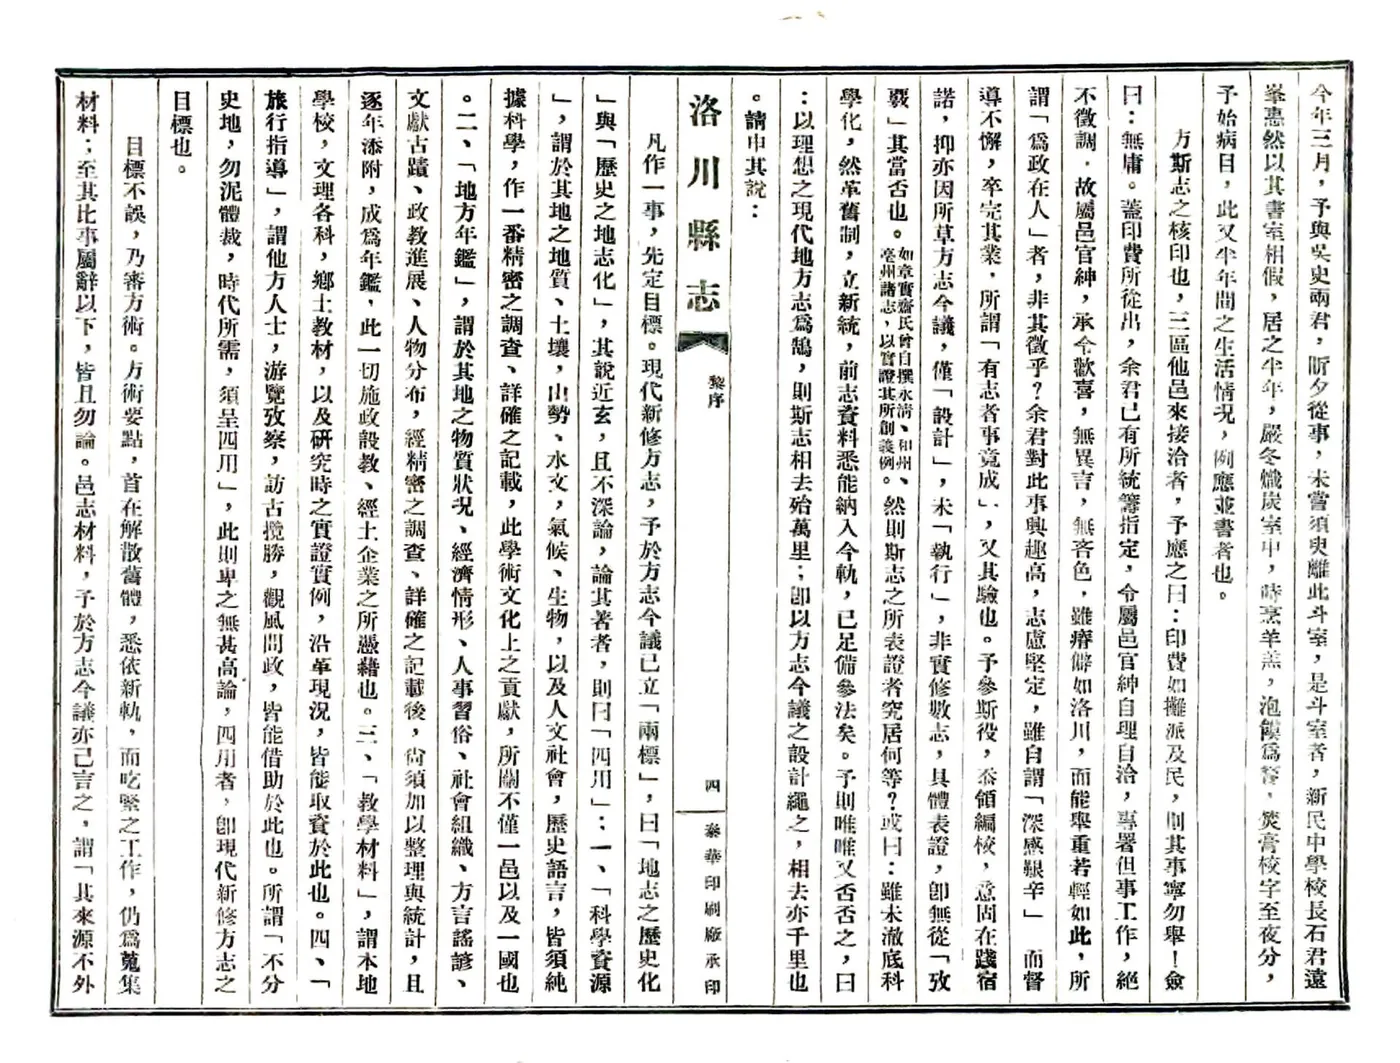 今年三月，予與吳史兩君，昕夕從事，未嘗須臾離此斗室，是斗室者，新民中學校長石君遠
峯惠然以其書室相假，居之半年，嚴冬熾炭室中，時烹羊羔，泡饃爲饔，焚膏校字至夜分，
予始病目，此又半年間之生活情况，例應並書者也。
方斯志之核印也，三區他邑來接洽者，予應之曰：印費如攤派及民，則其事寧勿舉！僉
曰：無庸。蓋印費所從出，余君已有所統籌指定，令屬邑官紳自理自洽，專署但事工作，絕
不徵調．故屬邑官紳，承令歡喜，無異言，無吝色，雖瘠僻如洛川，而能舉重若輕如此，所
謂「爲政在人」者，非其徵乎？余君對此事興趣高，志慮堅定，雖自謂「深感艱辛」　而督
導不懈，卒完其業，所謂「有志者事竟成」，又其驗也。予參斯役，忝領編校，意固在踐宿
諾，抑亦因所草方志今議，僅「設計」，未「執行」，非實修數志，具體表證，卽無從「攷
覈」其當否也。如章實齋氏曾自撰永清、和州、亳州諸志，以實證其所創義例。然則斯志之所表證者究居何等？或曰：雖未澈底科
學化，然革舊制，立新統，前志資料悉能納入今軌，已足備參法矣。予則唯唯又否否之，曰
：以理想之現代地方志爲鵠，則斯志相去殆萬里；卽以方志今議之設計繩之，相去亦千里也
。請申其說：
洛川縣志
黎序
四
泰華印刷廠承印
凡作一事，先定目標。現代新修方志，予於方志今議已立「兩標」，曰「地志之歷史化
」與「歷史之地志化」，其說近玄，且不深論，論其著者，則曰「四用」：一、「科學資源
」，謂於其地之地質、土壤，山勢、水文，氣候、生物，以及人文社會，歷史語言，皆須純
據科學，作一番精密之調查、詳確之記載，此學術文化上之貢獻，所關不僅一邑以及一國也
。二、「地方年鑑」，謂於其地之物質狀况、經濟情形、人事習俗、社會組織、方言謠諺、
文獻古蹟、政教進展、人物分布，經精密之調查、詳確之記載後，尙須加以整理與統計，且
逐年添附，成爲年鑑，此一切施政設教、經土企業之所憑藉也。三、「教學材料」，謂本地
學校，文理各科，鄉土教材，以及研究時之實證實例，沿革現况，皆能取資於此也。四、「
旅行指導」，謂他方人士，游覽攷察，訪古攬勝，觀風問政，皆能借助於此也。所謂「不分
史地，勿泥體裁，時代所需，須呈四用」，此則卑之無甚高論，四用者，卽現代新修方志之
目標也。
目標不誤，乃審方術。方術要點，首在解散舊體，悉依新軌，而吃緊之工作，仍爲蒐集
材料；至其比事屬辭以下，皆且勿論。邑志材料，予於方志今議亦已言之，謂「其來源不外